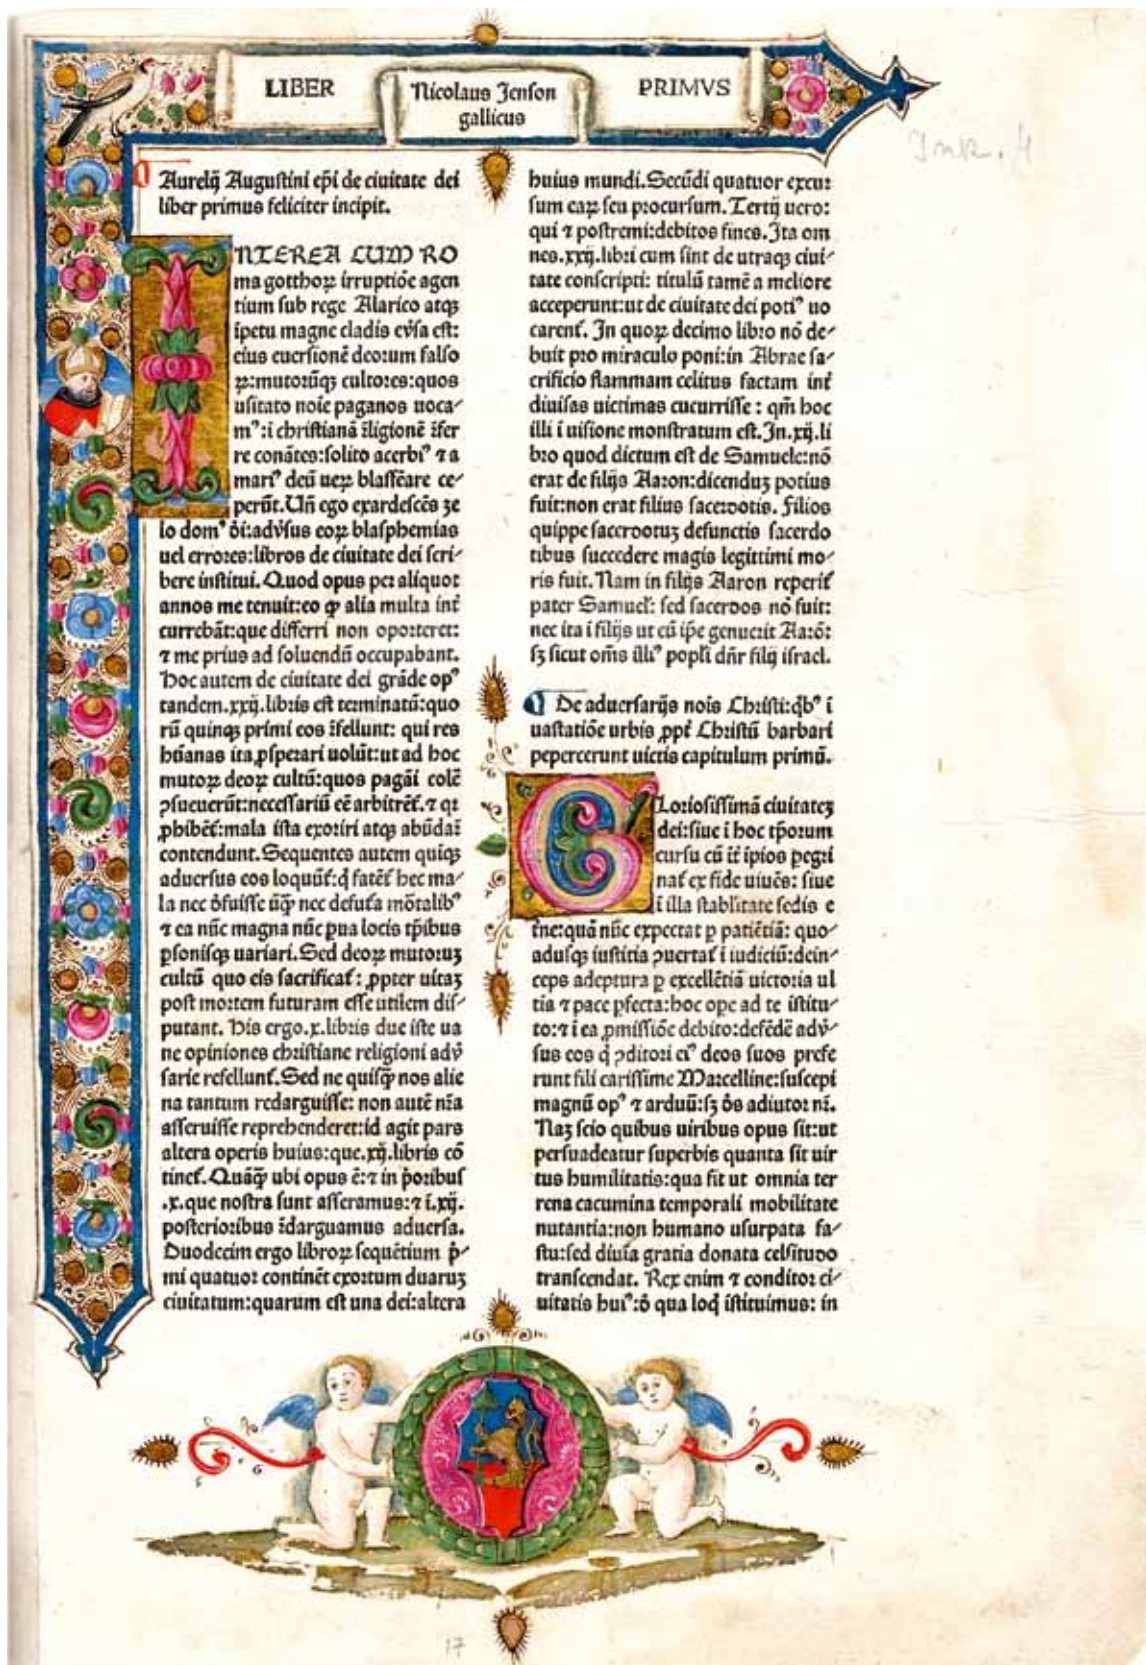 LIBER
Nicolaus Jenson
gallicus
PRIMVS
Ink. 4
Aurelij Augustini ep̄i de ciuitate dei
liber primus feliciter incipit.
INTEREA CUM RO
ma gotthoꝝ irruptiōe agen
tium sub rege Alarico atqꝫ
īpetu magne cladis ev̄sa est:
eius euersionē deorum falso
ꝝ:mutorūqꝫ cultores:quos
usitato noīe paganos uoca-
mꝰ:ī christianā r̄ligionē r̄fer
re conātes:solito acerbiꝰ ⁊ a
mariꝰ deū ueꝝ blasfēare ce-
perūt.Un̄ ego exardescēs ze
lo domꝰ dī:adv̄sus eoꝝ blasphemias
uel errores:libros de ciuitate dei scri-
bere institui.Quod opus per aliquot
annos me tenuit:eo ꝙ alia multa int̄
currebāt:que differri non oporteret:
⁊ me prius ad soluendū occupabant.
Hoc autem de ciuitate dei grāde opꝰ
tandem.xxij.libris est terminatū:quo
rū quinqꝫ primi eos r̄fellunt: qui res
hūanas ita ꝓsperari uolūt:ut ad hoc
mutoꝝ deoꝝ cultū:quos pagāi colē
ꝯsueuerūt:necessariū eē arbitrēt̄.⁊ qr
ꝓhibēt̄:mala ista exoriri atqꝫ abūdar̄
contendunt.Sequentes autem quiqꝫ
aduersus eos loquūt̄:q̄ fatēt̄ hec ma-
la nec d̄fuisse ūq̄ꝫ nec defut̄a mōtalibꝰ
⁊ ea nūc magna nūc ꝑua locis tꝑibus
ꝑsonisqꝫ uariari. Sed deoꝝ mutoruꝫ
cultū quo eis sacrificat̄: ꝓpter uitaꝫ
post mortem futuram esse utilem dis-
putant. His ergo.x.libris due iste ua
ne opiniones christiane religioni adv̄
sarie refellunt̄.Sed ne quisq̄ꝫ nos alie
na tantum redarguisse: non autē nr̄a
asseruisse reprehenderet:id agit pars
altera operis huius:que.xij.libris cō
tinet̄.Quāq̄ꝫ ubi opus ē:⁊ in p̄oribus
.x.que nostra sunt asseramus:⁊ ī.xij.
posterioribus r̄darguamus aduersa.
Duodecim ergo libroꝝ sequētium p̄-
mi quatuor continēt exortum duaruꝫ
ciuitatum:quarum est una dei:altera
huius mundi.Secūdi quatuor excur
sum eaꝝ seu procursum.Tertij uero:
qui ⁊ postremi:debitos fines.Ita om
nes.xxij.libri cum sint de utraqꝫ ciui-
tate conscripti: titulū tamē a meliore
acceperunt:ut de ciuitate dei potiꝰ uo
carent̄. In quoꝝ decimo libro nō de-
buit pro miraculo poni:in Abrae sa-
crificio flammam celitus factam int̄
diuisas uictimas cucurrisse: qm̄ hoc
illi ī uisione monstratum est.In.xij.li
bro quod dictum est de Samuele:nō
erat de filijs Aaron:dicenduꝫ potius
fuit:non erat filius sacerdotis. Filios
quippe sacerdotuꝫ defunctis sacerdo
tibus succedere magis legittimi mo-
ris fuit. Nam in filijs Aaron reperit̄
pater Samuel̄: sed sacerdos nō fuit:
nec ita ī filijs ut eū ip̄e genuerit Aarō:
sꝫ sicut om̄s illiꝰ popl̄i dn̄r filij israel.
De aduersarijs nois Christi:qb̄ꝰ ī
uastatiōe urbis ꝓpt̄ Christū barbari
pepercerunt uictis capitulum primū.
GLoriosissimā ciuitateꝫ
dei:siue ī hoc tp̄orum
cursu cū īt̄ īpios pegri
nat̄ ex fide uiuēs: siue
ī illa stabl̄itate sedis e
t̄ne:quā nūc expectat ꝑ patiētiā: quo-
adusqꝫ iustitia ꝯuertat̄ ī iudiciū:dein-
ceps adeptura ꝑ excellētiā uictoria ul
tia ⁊ pace ꝑfecta:hoc oꝑe ad te īstitu-
to:⁊ ī ea ꝓmissiōe debito:defēdē adv̄-
sus eos q̄ ꝯditori eiꝰ deos suos prefe
runt fili carissime Marcelline:suscepi
magnū opꝰ ⁊ arduū:sꝫ d̄s adiutor nr̄.
Naꝫ scio quibus uiribus opus sit:ut
persuadeatur superbis quanta sit uir
tus humilitatis:qua fit ut omnia ter
rena cacumina temporali mobilitate
nutantia:non humano usurpata fa-
stu:sed diuīa gratia donata celsitudo
transcendat. Rex enim ⁊ conditor ci-
uitatis huiꝰ:d̄ qua loq̄ īstituimus: in
17